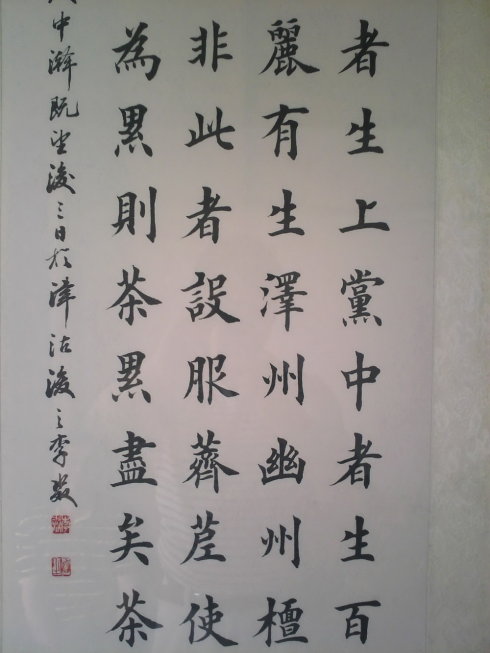 者生上黨中者生百
麗有生澤州幽州檀
非此者設服薺苨使
為累則茶累盡矣茶
中澣既望後三日於津沽浚之李